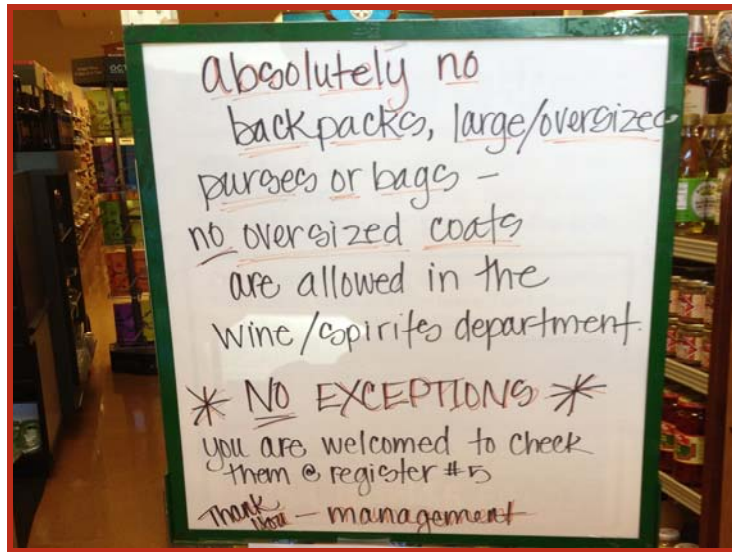 absolutely no
backpacks, large/oversized
purses or bags –
no oversized coats
are allowed in the
wine/spirits department.
* NO EXCEPTIONS *
you are welcomed to check
them @ register #5
Thank you – management
OCT